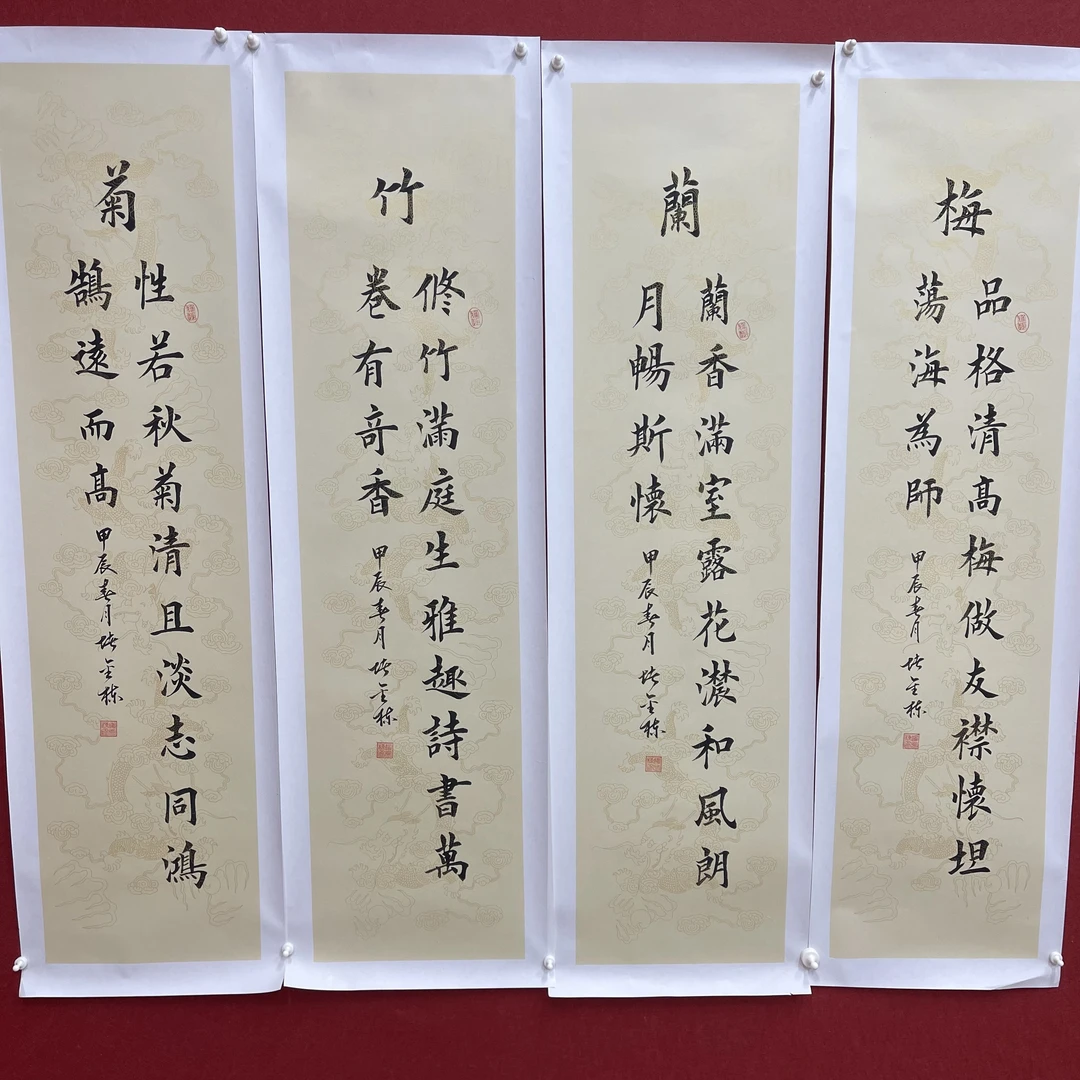 梅
品格清髙梅做友襟懷坦
蕩海為師
甲辰春月
蘭
蘭香滿室露花濃和風朗
月暢斯懷
甲辰春月
竹
修竹滿庭生雅趣詩書萬
卷有奇香
甲辰春月
菊
性若秋菊清且淡志同鴻
鵠遠而髙
甲辰春月